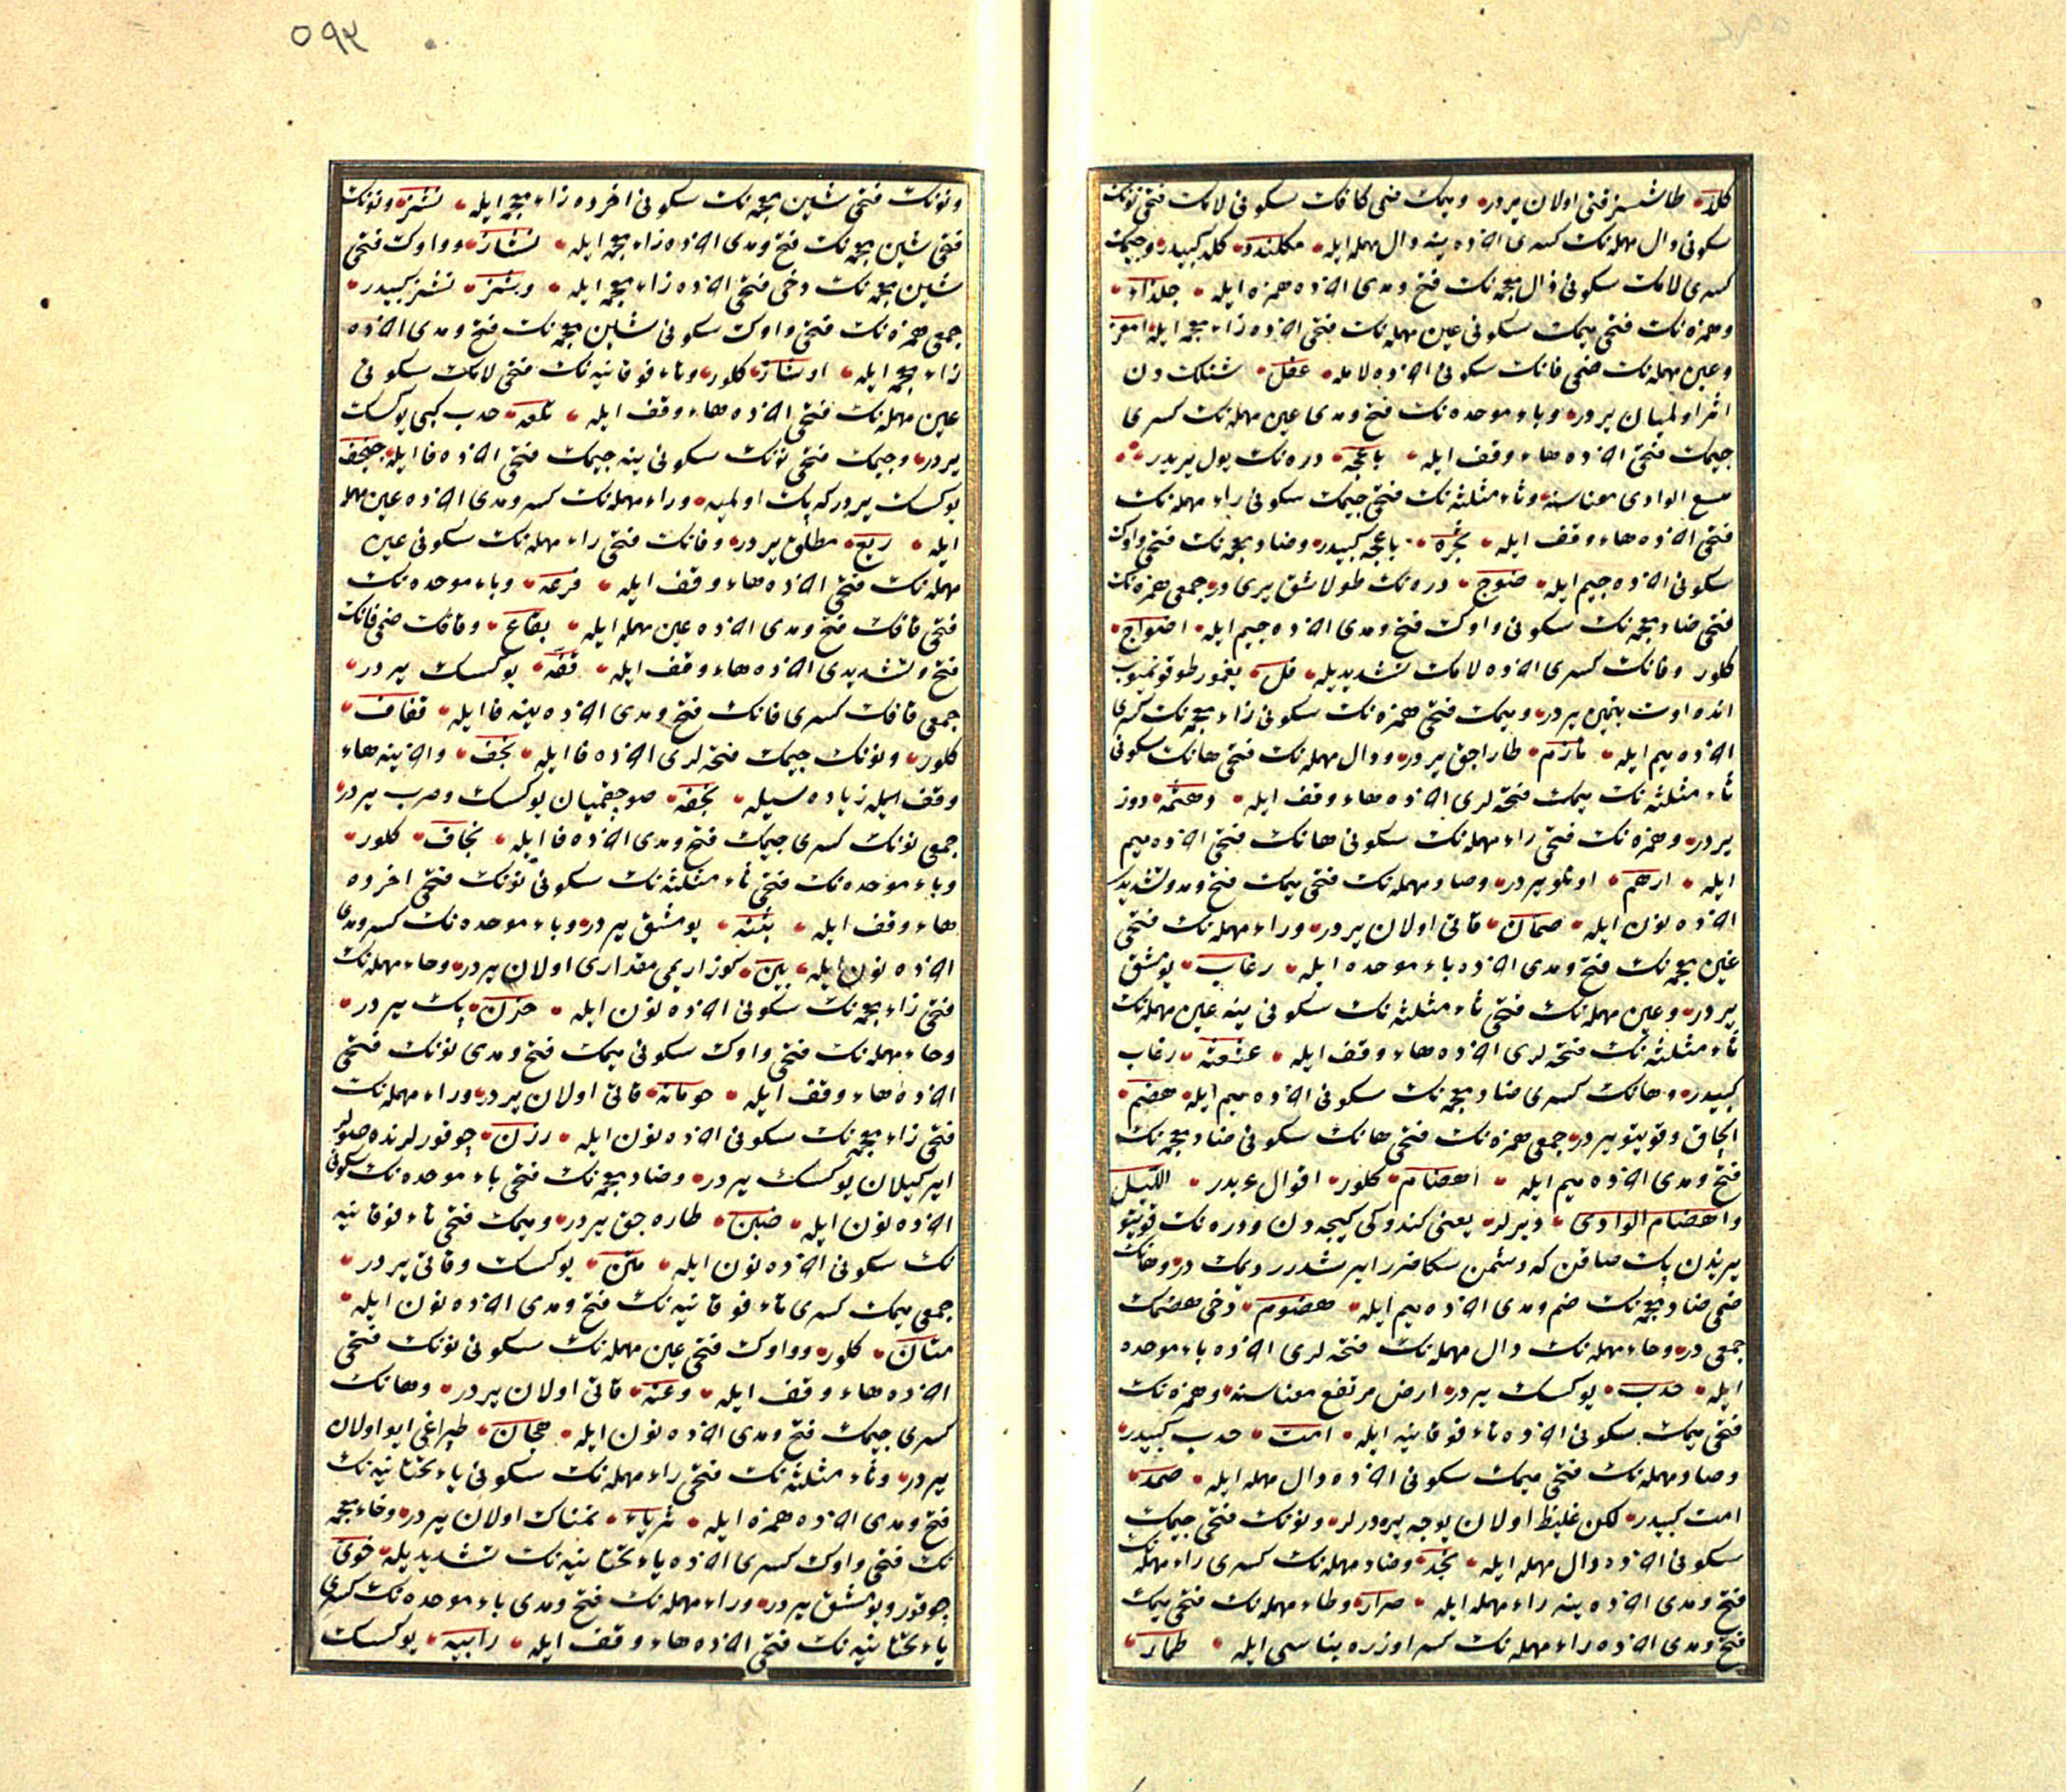 ٥٩٣
كلد طاشسز قتى اولان يردر وميمك ضمى كافك سكونى لامك فتحى نونك
سكونى دال مهمله نك كسرى آخرده ينه دال مهمله ايله مكلندد كلد كبيدر وجيمك
كسرى لامك سكونى ذال معجمه نك فتح ومدى آخرده همزه ايله جلذاء
وهمزه نك فتحى ميمك سكونى عين مهمله نك فتحى آخرده زاء معجمه ايله امعز
وعين مهمله نك ضمى فانك سكونى آخرده لامله عفل شنلكدن
اثر اولميان يردر وباء موحده نك فتح ومدى عين مهمله نك كسرى
جيمك فتحى آخرده هاء وقف ايله باعجه دره نك بول يريدر
متسع الوادى معناسنه وثاء مثلثه نك فتحى جيمك سكونى راء مهمله نك
فتحى آخرده هاء وقف ايله ثجره باعجه كبيدر وضاد معجمه نك فتحى واوك
سكونى آخرده جيم ايله ضوج دره نك طولاشق يرى در جمعى همزه نك
فتحى ضاد معجمه نك سكونى واوك فتح ومدى آخرده جيم ايله اضواج
كلور وفانك كسرى آخرده لامك تشديديله فل يغمور طوقونميوب
انده اوت بتمين يردر وميمك فتحى همزه نك سكونى زاء معجمه نك كسرى
آخرده ميم ايله مأزم طاراجق يردر ودال مهمله نك فتحى هانك سكونى
ثاء مثلثه نك ميمك فتحه لرى آخرده هاء وقف ايله دهثمه دوز
يردر وهمزه نك فتحى راء مهمله نك سكونى هانك فتحى آخرده ميم
ايله ارهم اوتلو يردر وصاد مهمله نك فتحى ميمك فتح ومد وتشديد
آخرده نون ايله صمان قاتى اولان يردر وراء مهمله نك فتحى
غين معجمه نك فتح ومدى آخرده باء موحده ايله رغاب يومشق
يردر وعين مهمله نك فتحى ثاء مثلثه نك سكونى ينه عين مهمله نك
ثاء مثلثه نك فتحه لرى آخرده هاء وقف ايله رغاب
كبيدر وهانك كسرى ضاد معجمه نك سكونى آخرده ميم ايله هضم
الچاق وقويتو يردر جمعى همزه نك فتحى هانك سكونى ضاد معجمه نك
فتح ومدى آخرده ميم ايله اهضام كلور اقوال عربدر الليل
واهضام الوادى ديرلر يعنى كندوكى كيجه دن ودره نك قويتو
يرندن پك صاقن كه دشمن سكا ضرر ايرشدرر ديمك در وهانك
ضمى ضاد معجمه نك ضم ومدى آخرده ميم ايله هضوم دخى هضمك
جمعى در وحاء مهمله نك دال مهمله نك فتحه لرى آخرده باء موحده
ايله حدب يوكسك يردر ارض مرتفع معناسنه وهمزه نك
فتحى ميمك سكونى آخرده تاء فوقانيه ايله امت حدب كبيدر
وصاد مهمله نك فتحى ميمك سكونى آخرده دال مهمله ايله صمد
امت كبيدر لكن غليظ اولان يوجه يره ديرلر ونونك فتحى جيمك
سكونى آخرده دال مهمله ايله نجد وصاد مهمله نك كسرى راء مهمله نك
فتح ومدى آخرده ينه راء مهمله ايله صرار وطاء مهمله نك فتحى ميمك
فتح ومدى آخرده راء مهمله نك كسر اوزره بناسى ايله طمار
ونونك فتحى شين معجمه نك سكونى آخرده زاء معجمه ايله نشز ونونك
فتحى شين معجمه نك فتح ومدى آخرده زاء معجمه ايله نشاز وواوك فتحى
شين معجمه نك دخى فتحى آخرده زاء معجمه ايله وشز نشز كبيدر
جمعى همزه نك فتحى واوك سكونى شين معجمه نك فتح ومدى آخرده
زاء معجمه ايله اوشاز كلور وتاء فوقانيه نك فتحى لامك سكونى
عين مهمله نك فتحى آخرده هاء وقف ايله تلعه حدب كبى يوكسك
يردر وجيمك فتحى نونك سكونى ينه جيمك فتحى آخرده فا ايله
يوكسك يردر كه پك اولميه وراء مهمله نك كسر ومدى آخرده عين مهمله
ايله ريع مطلق يردر وفانك فتحى راء مهمله نك سكونى عين
مهمله نك فتحى آخرده هاء وقف ايله فرعه وباء موحده نك
فتحى قافك فتح ومدى آخرده عين مهمله ايله بقاع وقافك ضمى فانك
فتح وتشديدى آخرده هاء وقف ايله قفه يوكسك يردر
جمعى قافك كسرى فانك فتح ومدى آخرده ينه فا ايله قفاف
كلور ونونك جيمك فتحه لرى آخرده فا ايله نجف وآخرينه هاء
وقف ايله زياده سيله نجفه صو چقميان يوكسك وصرب يردر
جمعى نونك كسرى جيمك فتح ومدى آخرده فا ايله نجاف كلور
وباء موحده نك فتحى ثاء مثلثه نك سكونى نونك فتحى آخرده
هاء وقف ايله بثنه يومشق يردر وباء موحده نك كسر ومدى
آخرده نون ايله بين كوز ايريمى مقدارى اولان يردر وحاء مهمله نك
فتحى زاء معجمه نك سكونى آخرده نون ايله حزن پك يردر
وحاء مهمله نك فتحى واوك سكونى ميمك فتح ومدى نونك فتحى
آخرده هاء وقف ايله حومانه قاتى اولان يردر وراء مهمله نك
فتحى زاء معجمه نك سكونى آخرده نون ايله رزن چوقورلرنده صولر
ايركيلان يوكسك يردر وضاد معجمه نك فتحى باء موحده نك سكونى
آخرده نون ايله ضبن طاره جق يردر وميمك فتحى تاء فوقانيه
نك سكونى آخرده نون ايله متن يوكسك وقاتى يردر
جمعى ميمك كسرى تاء فوقانيه نك فتح ومدى آخرده نون ايله
متان كلور وواوك فتحى عين مهمله نك سكونى نونك فتحى
آخرده هاء وقف ايله وعنه قاتى اولان يردر وهانك
كسرى جيمك فتح ومدى آخرده نون ايله هجان طپراغى ايو اولان
يردر وثاء مثلثه نك فتحى راء مهمله نك سكونى ياء تحتانيه نك
فتح ومدى آخرده همزه ايله ثرياء نمناك اولان يردر وخاء معجمه
نك فتحى واوك كسرى آخرده ياء تحتانيه نك تشديديله خوى
چوقور ويومشق يردر وراء مهمله نك فتح ومدى باء موحده نك كسرى
ياء تحتانيه نك فتحى آخرده هاء وقف ايله رابيه يوكسك